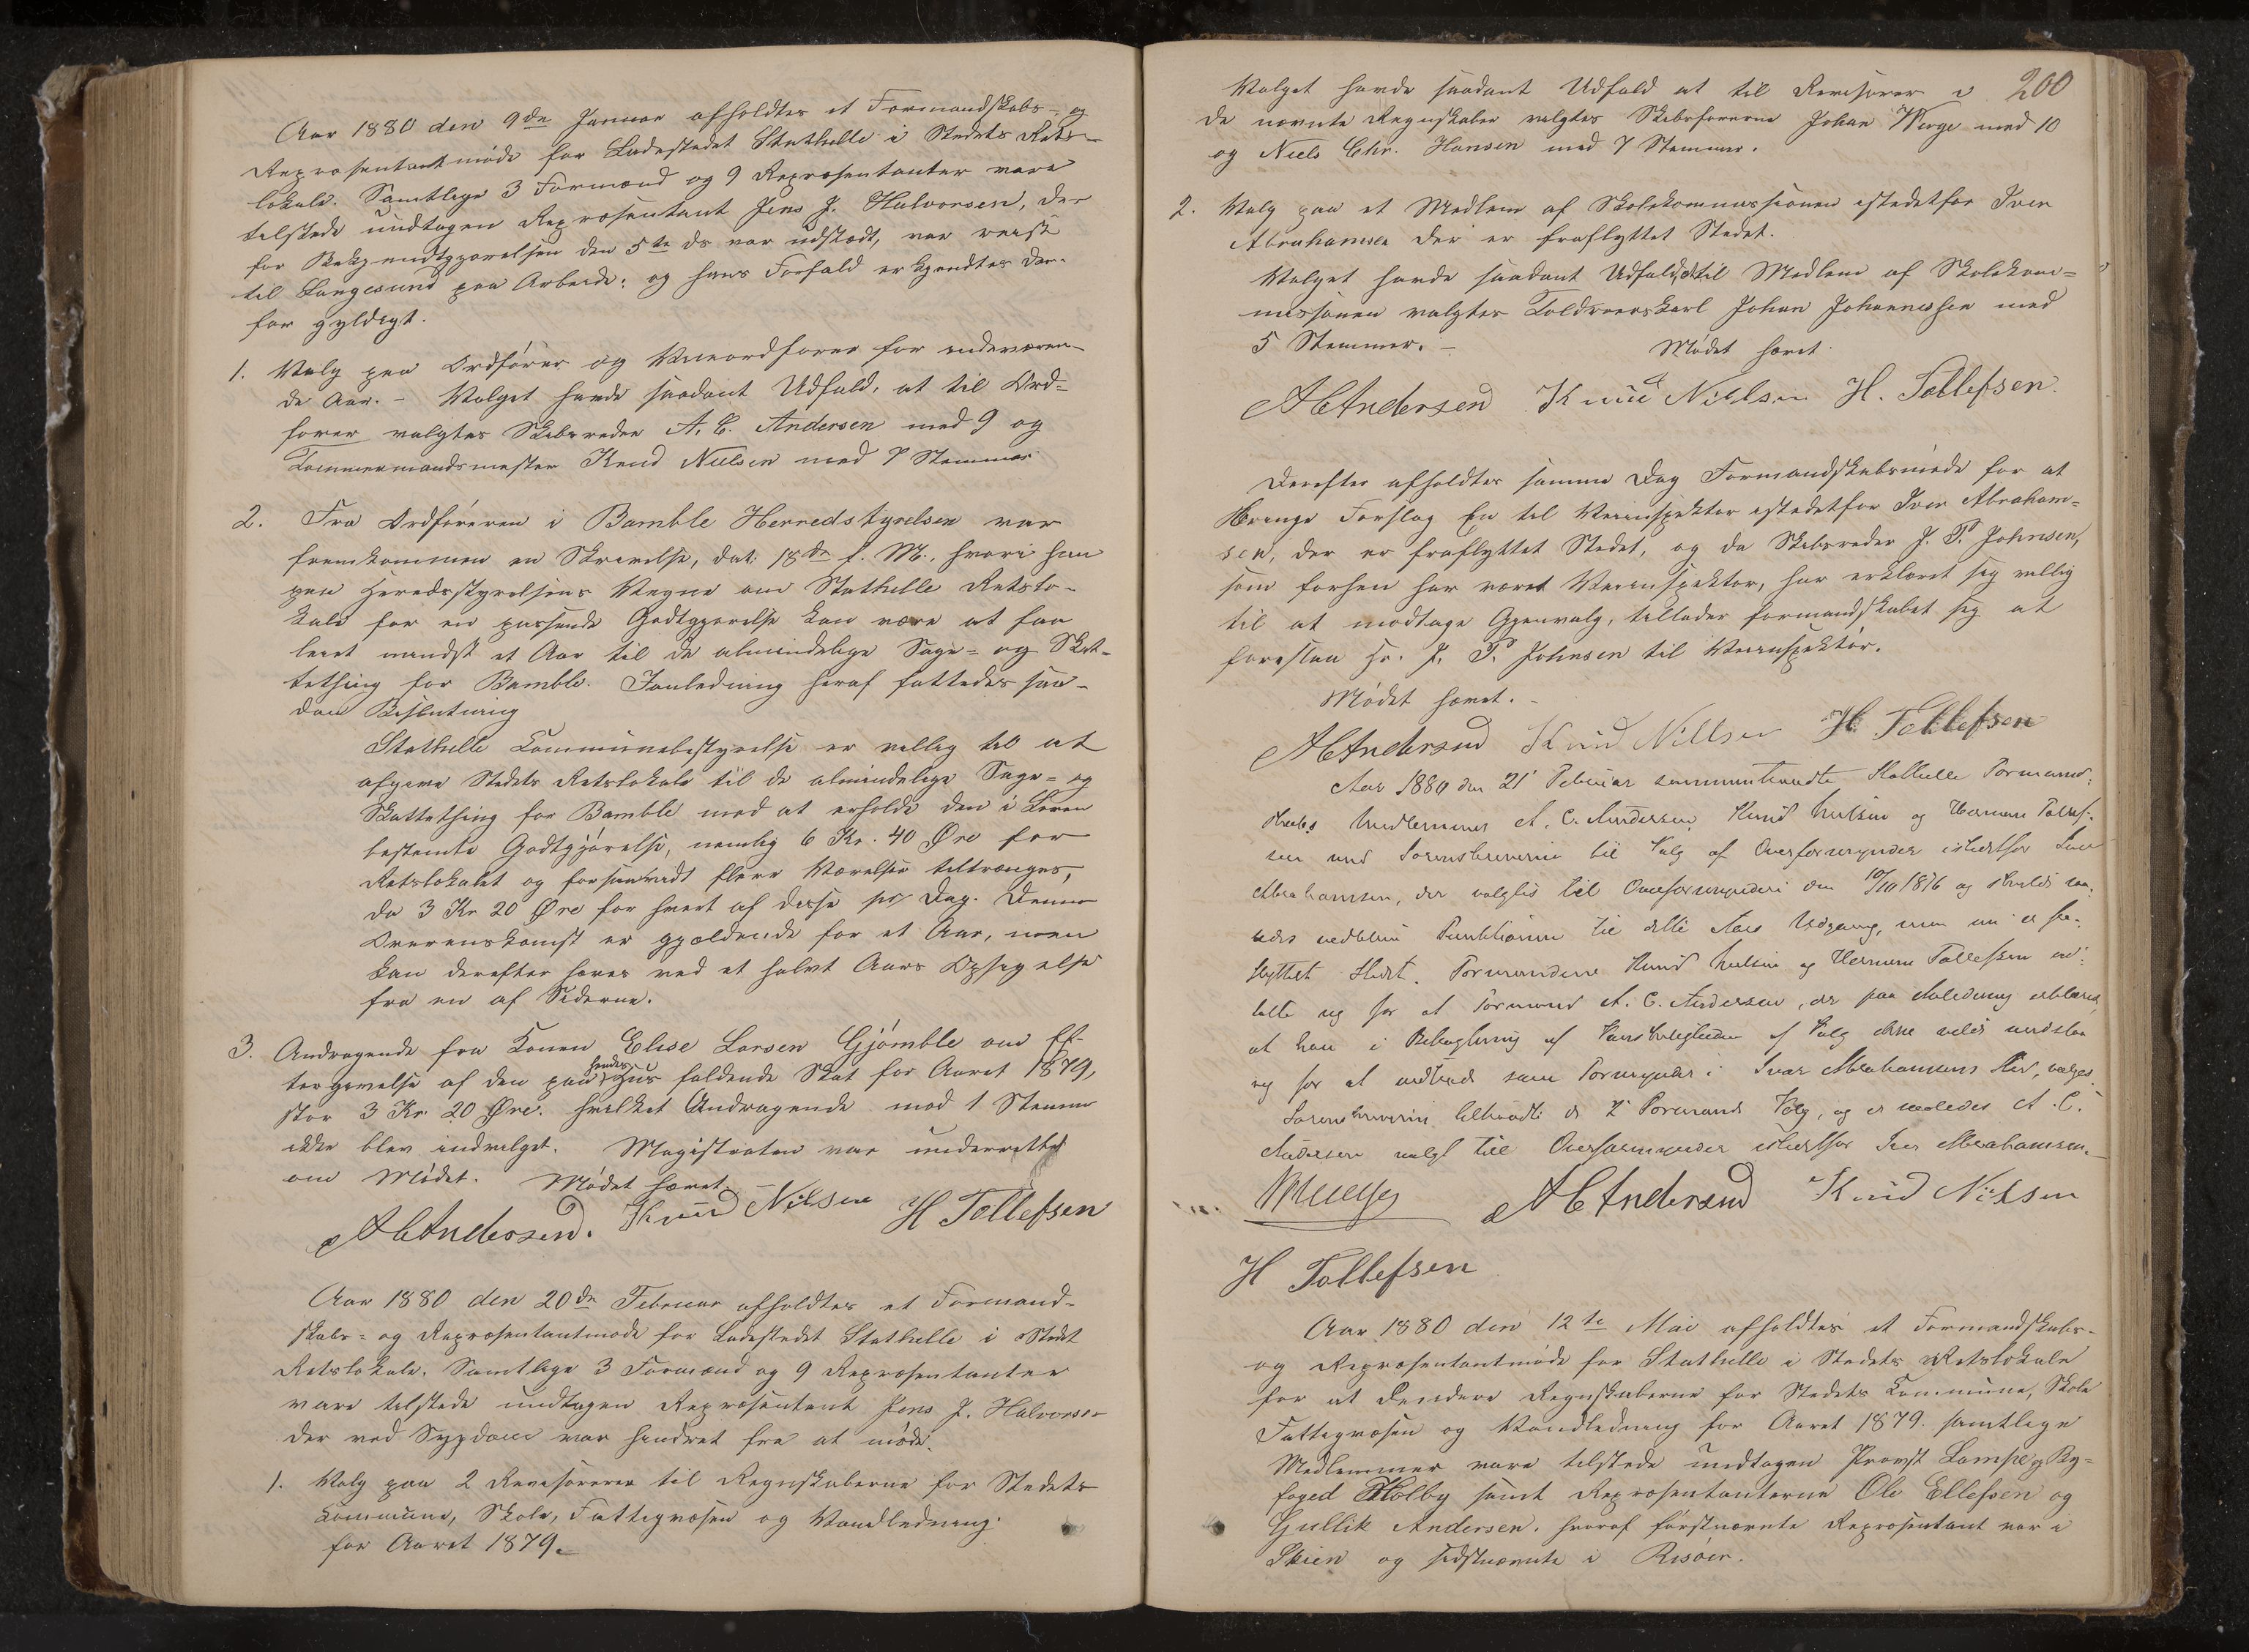 Aar 1880 den 9de Januar afholdtes et Formandskabs- og
Repræsentantmøde for Ladestedet Stathelle i Stedets Rets-
lokale. Samtlige 3 Formænd og 9 Repræsentanter vare
tilstede undtagen Repræsentant Jens J. Halvorsen, der
før Bekjendtgjørelsen den 5te ds var udstædt, var reist
til Langesund paa Arbeide; og hans Forfald erkjendtes der-
for gyldigt.
1. Valg paa Ordfører og Viceordfører for indeværen-
de Aar. – Valget havde saadant Udfald, at til Ord-
fører valgtes Skibsreder A. C. Andersen med 9 og
Tømmermandsmester Knud Nielsen med 7 Stemmer
2. Fra Ordføreren i Bamble Herredstyrelsen var
fremkommen en Skrivelse, dat. 18de f. M., hvori han
paa Herredsstyrelsens Vegne om Stathelle Retslo-
kale for en passende Godtgjørelse kan være at faa
leiet mindst et Aar til de almindelige Sage- og Skat-
tething for Bamble. I Anledning heraf fattedes saa-
dan Beslutning
Stathelle Communebestyrelse er villig til at
afgive Stedets Retslokale til de almindelige Sage- og
Skattething for Bamble mod at erholde den i Loven
bestemte Godtgjørelse, nemlig 6 Kr. 40 Øre for
Retslokalet og forsaavidt flere Værelser tiltrænges,
da 3 Kr 20 Øre for hvert af disse pr Dag. Denne
Overenskomst er gjældende for et Aar, men
kan derefter hæves ved et halvt Aars Opsigelse
fra en af Siderne.
3. Andragende fra Konen Elise Larsen Gjømble om Ef-
tergivelse af den paa hendes Hus faldende Skat for Aaret 1879,
stor 3 Kr. 20 Øre. hvilket Andragende mod 1 Stemme
ikke blev indvilget. Magistraten var underrettet
om Mødet. Mødet hævet. –
A C Andersen. Knud Nilsen H Tollefsen
Aar 1880 den 20de Februar afholdtes et Formand-
skabs- og Repræsentantmøde for Ladestedet Stathelle i Stedets
Retslokale. Samtlige 3 Formænd og 9 Repræsentanter
vare tilstede undtagen Repræsentant Jens J. Halvorsen
der ved Sygdom var hindret fra at møde.
1. Valg paa 2 Revisorerer til Regnskaberne for Stedets
Commune, Skole, Fattigvæsen og Vandledning
for Aaret 1879.
200
Valget havde saadant Udfald at til Revisorer i
de nævnte Regnskaber valgtes Skibsførerne Johan Wirge med 10
og Niels Chr. Hansen med 7 Stemmer.
2. Valg paa et Medlem af Skolekommissionen istedetfor Iver
Abrahamsen der er fraflyttet Stedet.
Valget havde saadant Udfald, at til Medlem af Skolekom-
missionen valgtes Toldroerskarl Johan Johannessen med
5 Stemmer. – Mødet hævet.
A C Andersen Knud Nielsen H. Tollefsen.
Derefter afholdtes samme Dag Formandskabsmøde for at
bringe Forslag En til Veiinspektør istedetfor Iver Abraham-
sen, der er fraflyttet Stedet, og da Skibsreder J. P. Johnsen,
som forhen har været Veiinspektør, har erklæret sig villig
til at modtage Gjenvalg, tillader formandskabet sig at
foreslaa Hr. J. P. Johnsen til Veiinspektør.
Mødet hævet. –
A C Andersen Knud Nillsen H. Tollefsen
Aar 1880 den 21 Februar sammentraadte Stathelle Formand-
skabs Medlemmer A. C. Andersen, Knud Nielsen og Herman Tollef-
sen med Sorenskriveren til Valg af Overformynder istedetfor Iver
Abrahamsen, der valgtes til Overformynder den 10/10 1876 og skulde saa-
ledes vedblive Funktionen til dette Aars Udgang, men nu er fra-
flyttet Stedet. Formændene Knud Nielsen og Herman Tollefsen ud-
talte sig for at Formand A. C. Andersen, der paa Anledning erklærede
at han i Betragtning af Vanskeligheden af Valg ikke vilde undslaa
sig for at indtræde som Formynder i Iver Abrahamsens Sted, vælges.
Sorenskriveren tiltraadte de 2 Formænds Valg, og er saaledes A. C.
Andersen valgt til Overformynder istedetfor Iver Abrahamsen. –
A C Andersen Knud Nilsen
H Tollefsen
Aar 1880 den 12te Mai afholdtes et Formandskabs-
og Repræsentantmøde for Stathelle i Stedets Retslokale
for at decidere Regnskaberne for Stedets Commune, Skole
Fattigvæsen og Vandledning for Aaret 1879. samtlige
Medlemmer vare tilstede undtagen Provst Lampe, By-
foged Kølby samt Repræsentanterne Ole Ellefsen og
Gullik Andersen. hvoraf førstnævnte Repræsentant var i
Skien og sidstnævnte i Risøer.